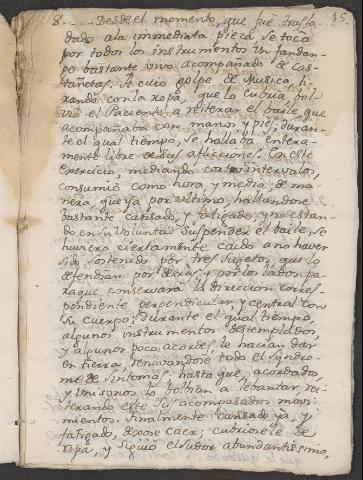 8.... Desde el momento, que fué trasla 35
dado a la immediata pieza, se tocó
por todos los instrumentos un fandan-
go bastante vivo acompañado de Cas-
tañetas. A cuio golpe de Musica, ti-
rando con la ropa, que lo cubria, bol-
vió el Paciente a reiterar el baile, que
acompañaba con manos y pies; duran-
te el qual tiempo, se hallaba entera-
mente libre de sus aflicciones. En este
exercicio, mediando cortos intervalos,
consumió como hora, y media; de ma-
nera, que ya por ultimo, hallandose
bastante cansado, y fatigado, y no estan-
do en su voluntad suspender el baile, se
huviera ciertamente caido a no haver
sido sostenido por tres sujetos, que lo
defendian por detras, y por los lados pa-
ra que conservára la direccion corres-
pondiente perpendicular, y central con
su cuerpo; durante el qual tiempo,
algunos instrumentos destemplados
y algunos poco acordes le hacian dar
en tierra, renovandose todo el syndro-
me de sintomas, hasta que, acordados
y unisonos lo bolbian a lebantar, rei-
terando este sus acompasados movi-
mientos. Finalmente cansado ya, y
fatigado, dexose caer; cubriósele de
ropa, y siguio el sudor abundantissimo,